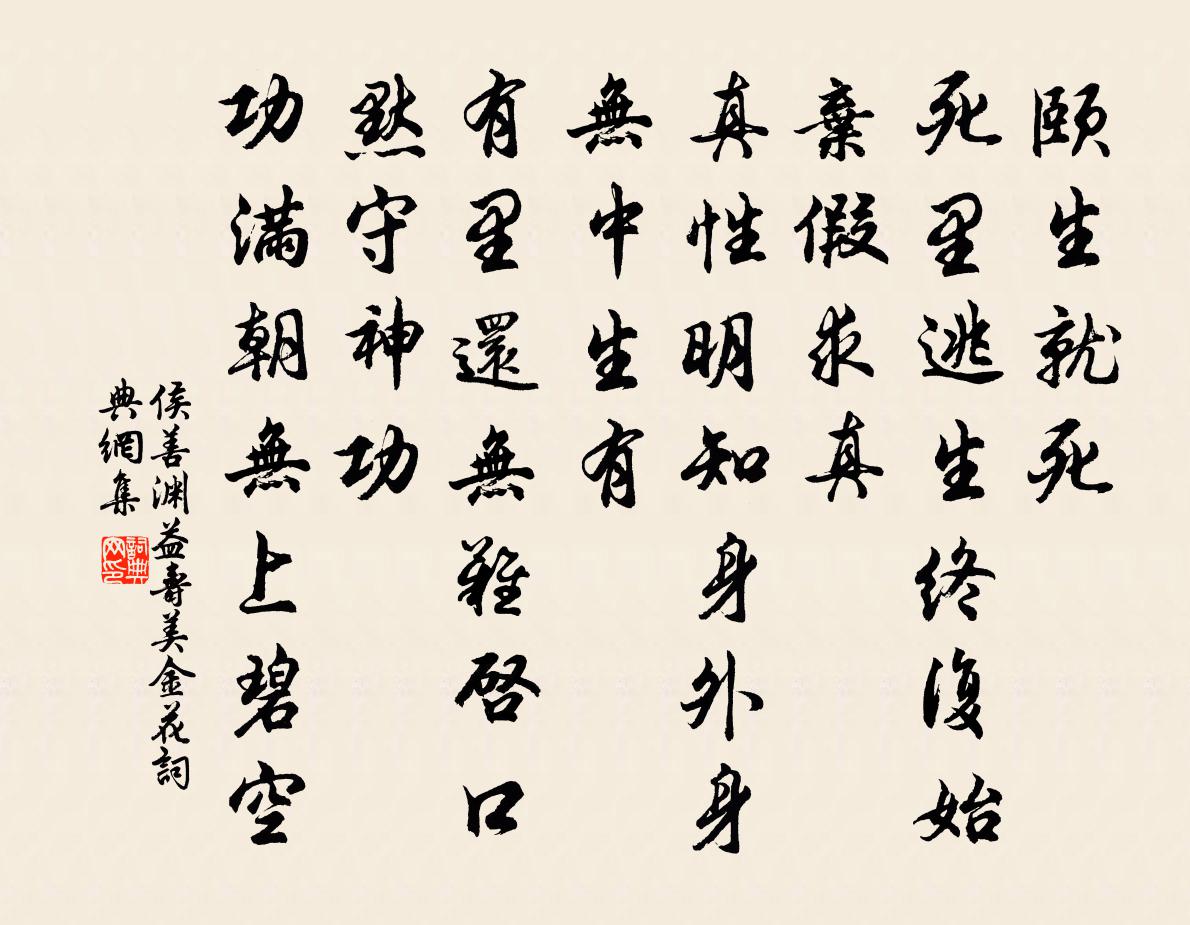 頤生就死
死里逃生終復始
棄假求真
真性明知身外身
無中生有
有里還無難啓口
默守神功
功滿朝無上碧空
侯善渊益壽美金花詞
典網集
詞典网印